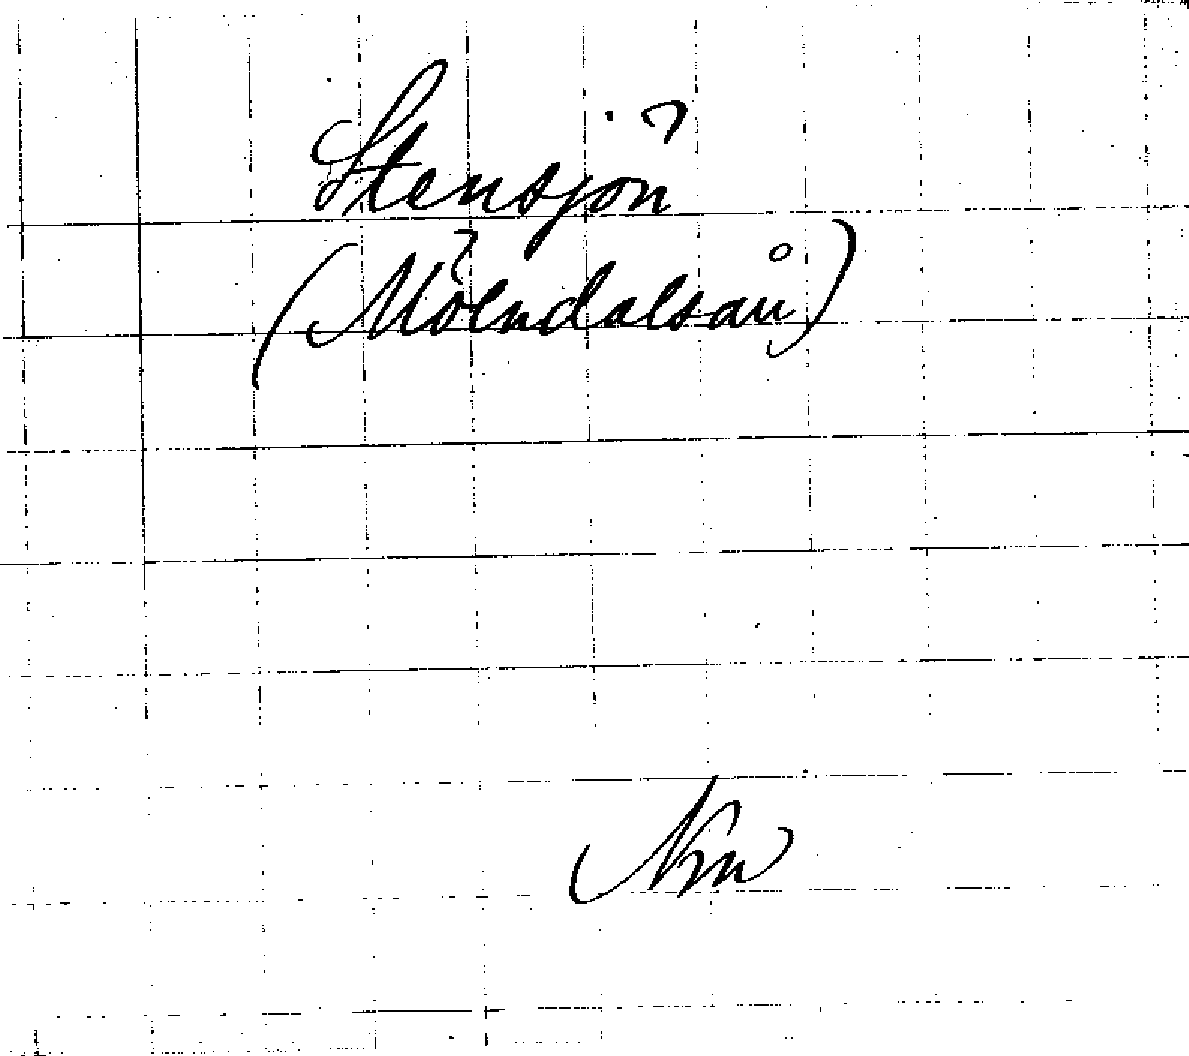 Stensjön
(Mölndalsån)